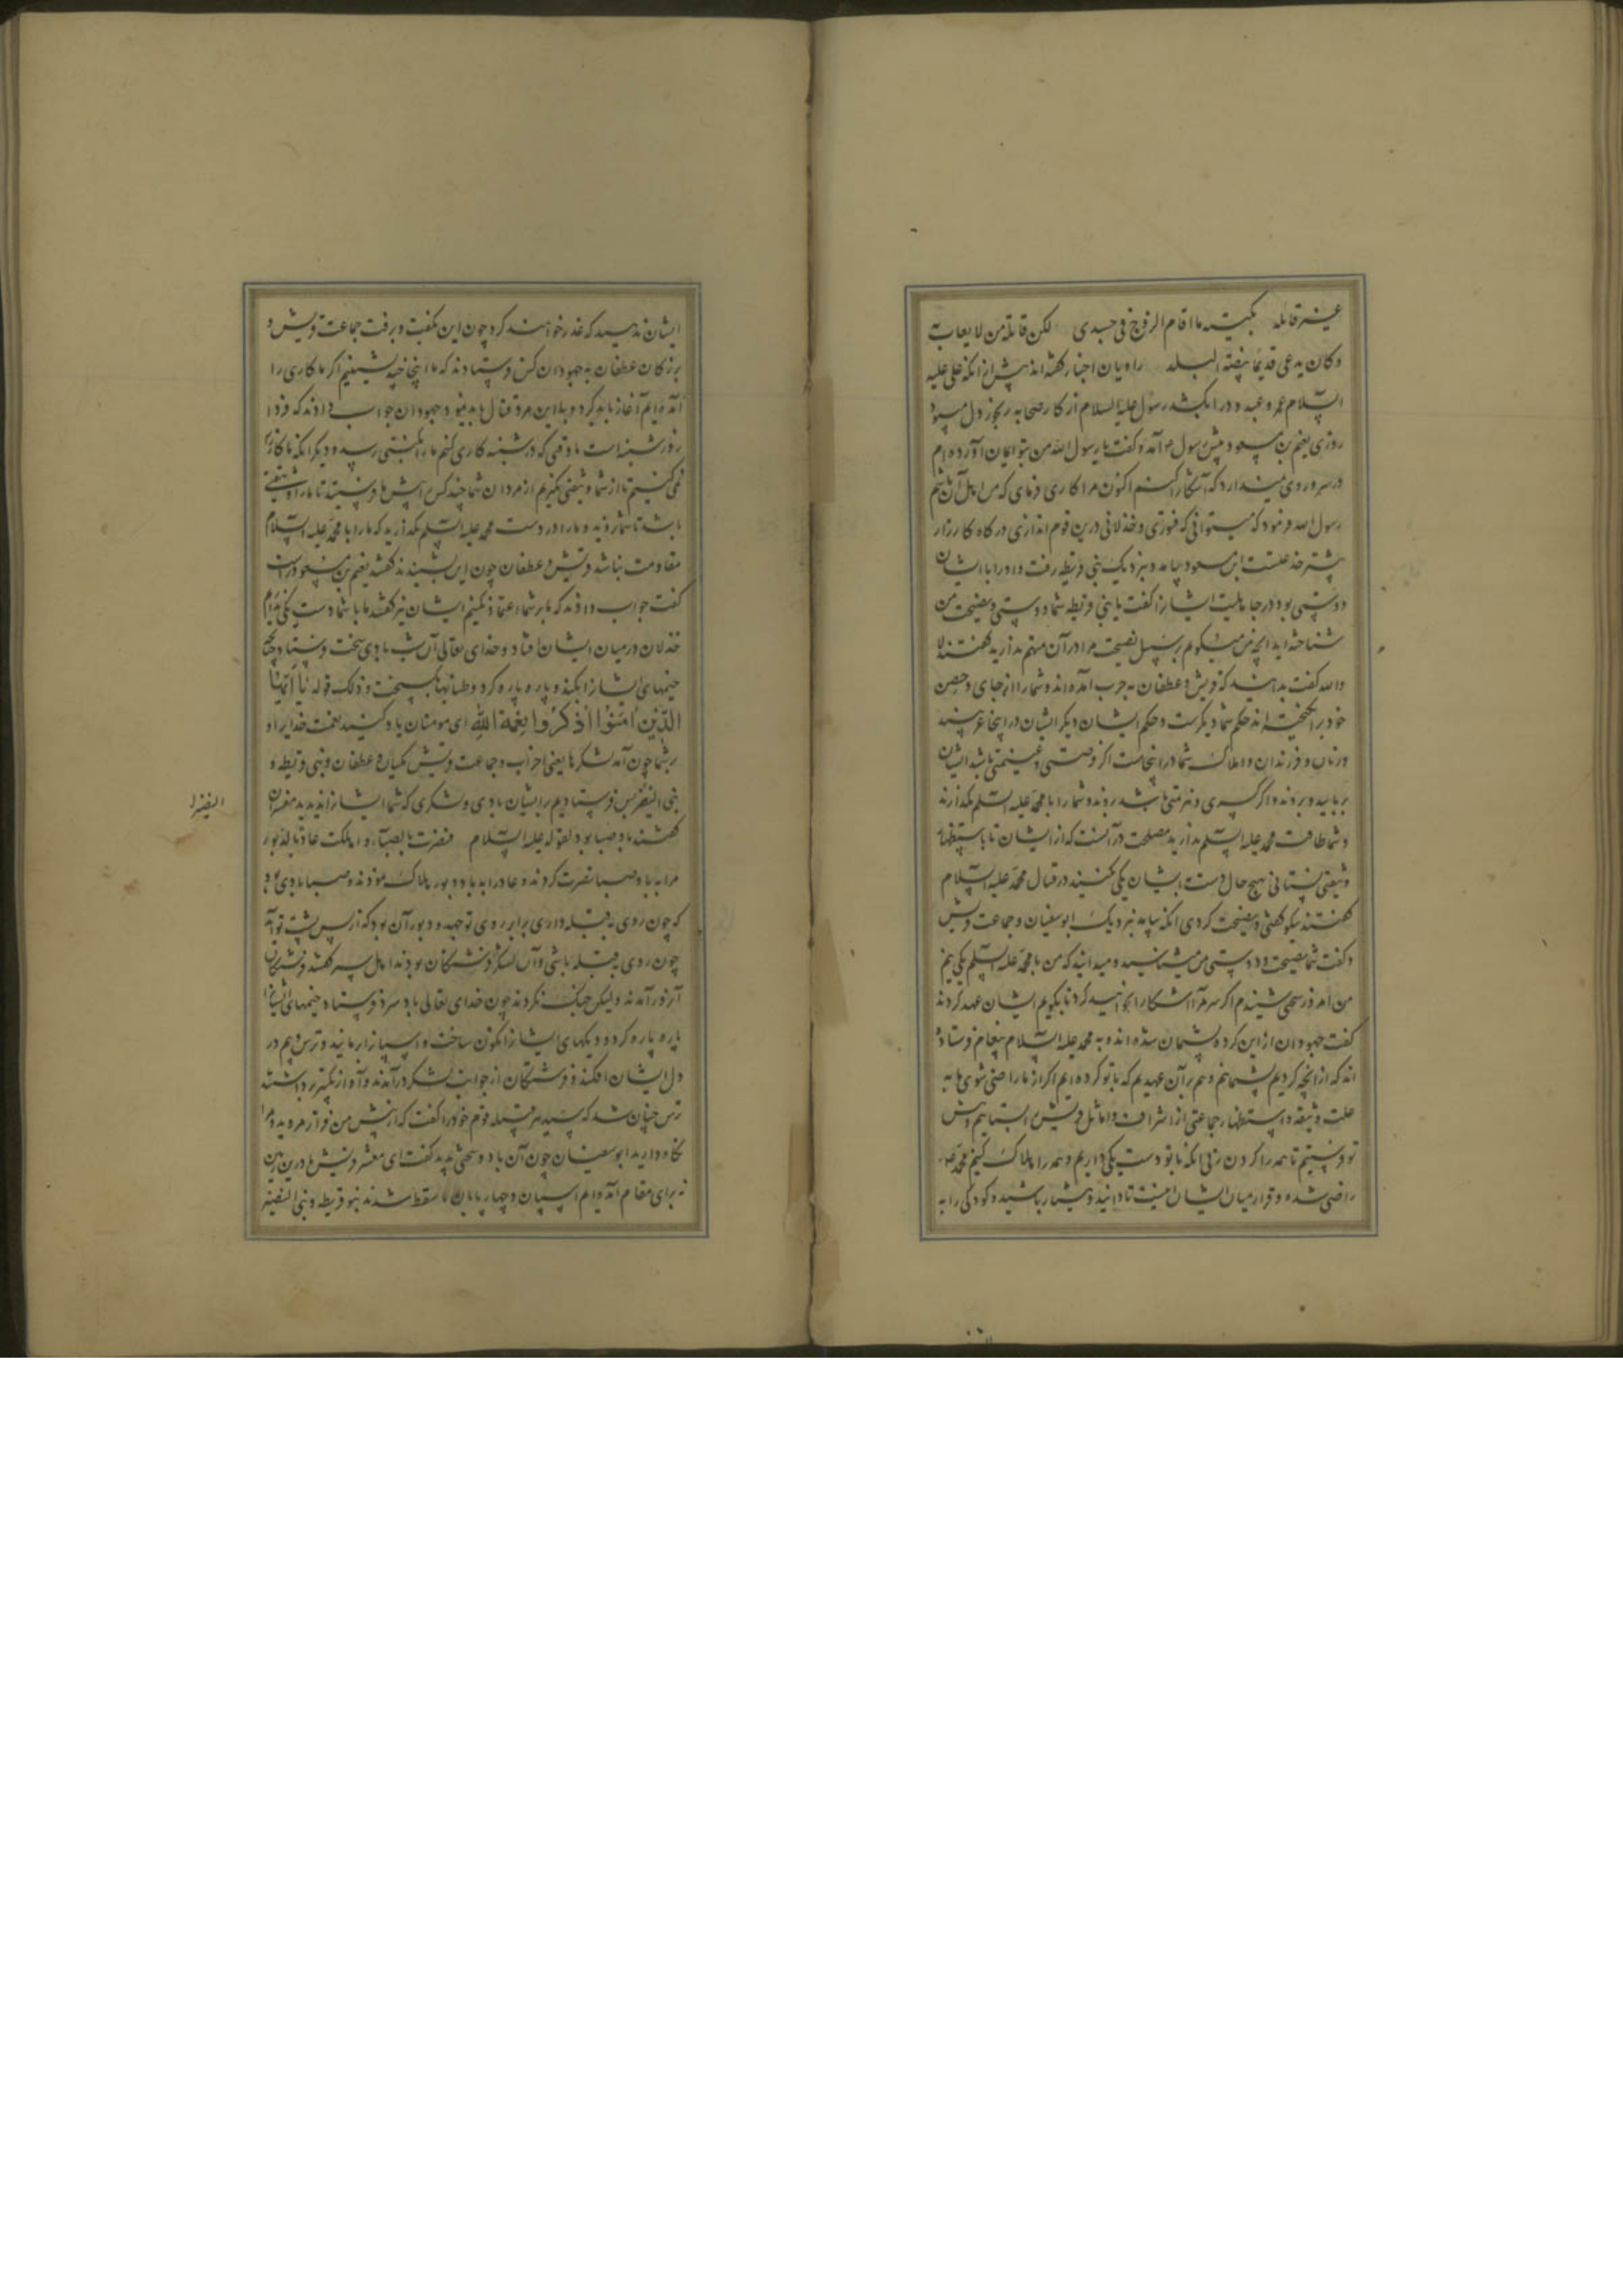 غیر قاتله بکیته ما اقام الروح فی جسدی لکن قاتله من لا یعاب به
وکان یدعی قدیما بیضة البلد راویان اخبار گفته‌اند پیش از آنکه علی علیه
السلام عمرو عبدود را بکشد رسول علیه السلام از کار صحابه رنجور دل میبود
روزی نعیم بن مسعود پیش رسول آمد و گفت یا رسول الله من بتو ایمان آورده‌ام
اکنون مرا کاری فرمای که من اهل آن باشم
رسول الله فرمود که میتوانی که فتوری و خذلانی درین قوم اندازی در کاه کارزار
ابن مسعود بیامد و بنزدیک بنی قریظه رفت و او را با ایشان
دوستی بود در جاهلیت ایشانرا گفت یا بنی قریظه شما دوستی و نصیحت من
شناخته‌اید آنچه من میگویم بر سبیل نصیحت مرا در آن متهم مدارید گفتند لا
والله گفت بدانید که قریش و غطفان به حرب آمده‌اند و شما را از جای و حصن
خود برانگیخته‌اند حکم شما دیگرست و حکم ایشان دیگر ایشان در اینجا غریبند
و زنان و فرزندان و املاک شما در اینجاست اگر فرصتی و غنیمتی باشد ایشان
بربایند و بروند و اگر کسری و هزیمتی باشد بروند و شما را با محمد علیه السلام بگذارند
و شما طاقت محمد علیه السلام ندارید مصلحت در آنست که از ایشان تا باستظهار
وثیقتی نستانی بهیچ حال دست با ایشان یکی نکنید در قتال محمد علیه السلام
گفتند نیکو گفتی و نصیحت کردی آنگه بیامد بنزدیک ابوسفیان و جماعت قریش
و گفت شما نصیحت و دوستی من میشناسید و میدانید که من با محمد علیه السلم یکی نیم
من امروز سخنی شنیدم اگر سر مرا آشکارا نخواهید کرد تا بگویم ایشان عهد کردند
گفت جهودان از این کرده پشیمان شده‌اند و به محمد علیه السلام پیغام فرستاده
اند که از آنچه کردیم پشیمانیم و هم بر آن عهدیم که با تو کرده‌ایم اگر از ما راضی شوی ما به
علت وثیقه و استظهار جماعتی از اشراف و اماثل قریش بستانیم و پیش
تو فرستیم تا همه را گردن بزنی آنگه با تو دست یکی داریم و همه را هلاک کنیم محمد
راضی شده و قرار میان ایشان اینست تا دانید و هشیار باشید و کودکی را به
ایشان ندهید که غدر خواهند کرد چون این بگفت و برفت جماعت قریش و
بزرگان غطفان به جهودان کس فرستادند که ما اینجا چند نشینیم اگر ما کاری را
آمده‌ایم آغاز باید کرد و با این مرد قتال باید نمود جهودان جواب دادند که فردا
روز شنبه است ما وقتی که در شنبه کاری کنیم ما را نکبتی رسد و دیگر آنکه ما کارزار
نمی‌کنیم تا از شما وثیقتی نگیریم از مردان شما چند کس پیش ما فرستید تا ما را وثیقتی
باشد تا شما نروید و ما را در دست محمد علیه السلم نگذارید که ما را با محمد علیه السلام
مقاومت نباشد قریش و غطفان چون این بشنیدند گفتند نعیم بن مسعود راست
گفت جواب دادند که ما بر شما اعتماد نکنیم ایشان نیز گفتند ما با شما دست یکی نداریم
خذلان در میان ایشان افتاد و خدای تعالی آن شب بادی سخت فرستاد
خیمهای ایشانرا بکند و پاره پاره کرد و طنابها بگسیخت و ذلک قوله یا ایها
الذین آمنوا اذکروا نعمة الله ای مومنان یاد کنید نعمت خدایرا
بر شما چون آمد لشکرها یعنی احزاب و جماعت قریش مکیان و غطفان و بنی قریظه و
بنی النضیر پس فرستادیم بر ایشان بادی و لشکری که شما ایشانرا ندیدید مفسران
گفتند باد صبا بود لقوله علیه السلام نصرت بالصبا و اهلکت عاد بالدبور
مرا به باد صبا نصرت کردند و عاد را به باد دبور هلاک نمودند و صبا بادی بود
که چون روی به قبله داری برابر روی تو جهد و دبور آن بود که از پس پشت تو آید
چون روی به قبله باشی و آن لشکر فرشتگان بودند اهل سیر گفتند فرشتگان
آنروز آمدند ولیکن جنگ نکردند چون خدای تعالی باد سرد فرستاد خیمهای ایشانرا
پاره پاره کرد و دیگهای ایشانرا نگون ساخت و اسپانرا برمانید و ترس و بیم در
دل ایشان افکند و فرشتگان از جوانب لشکر درآمدند و آواز تکبیر برداشتند
ترس چنان شد که سید هر قبیله قوم خود را گفت که از پیش من فراتر مروید و مرا
نگاه دارید ابوسفیان چون آن باد و سختی بدید گفت ای معشر قریش ما درین زمین
نه برای مقام آمده‌ایم اسپان و چهارپایان ما سقط شدند بنو قریظه و بنی النضیر
النضیر